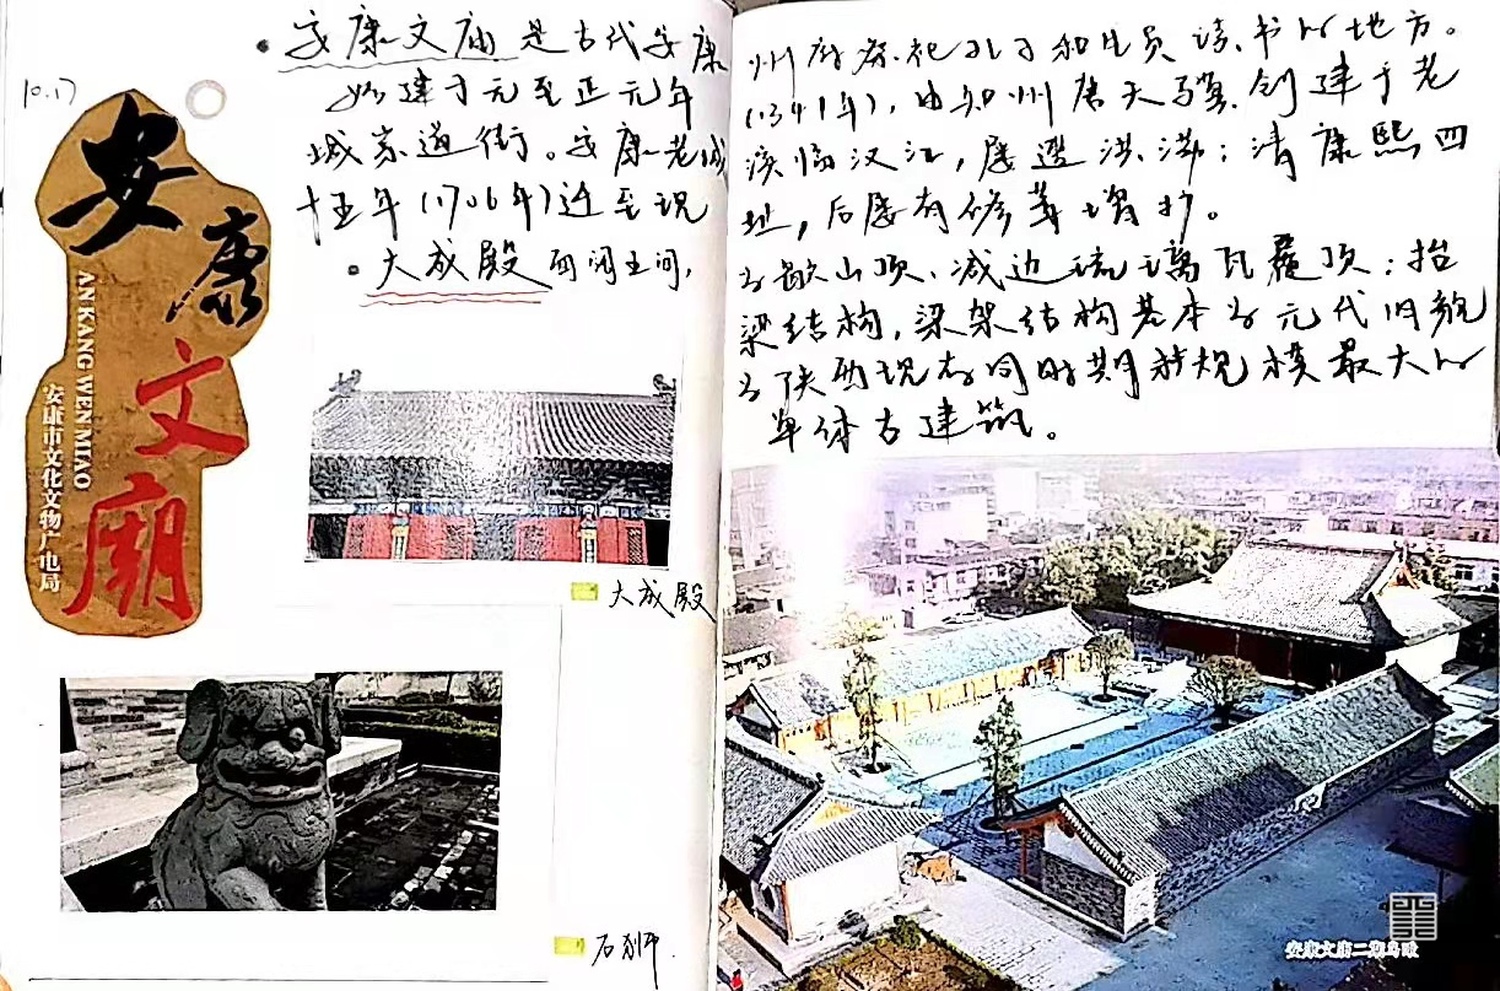 10.17
安康文庙
ANKANG WENMIAO
安康市文化文物广电局
•安康文庙是古代安康州府祭祀孔子和生员读书的地方。
始建于元至正元年(1341年),由知州唐天骥创建于老
城家道街。安康老城滨临汉江,屡遭洪涝;清康熙四
十五年(1706年)迁至现址,后屡有修葺增扩。
•大成殿面阔五间,为歇山顶、减边琉璃瓦覆顶;抬
梁结构,梁架结构基本为元代旧貌
为陕西现存同时期规模最大的
单体古建筑。
大成殿
石狮.
安康文庙二期鸟瞰